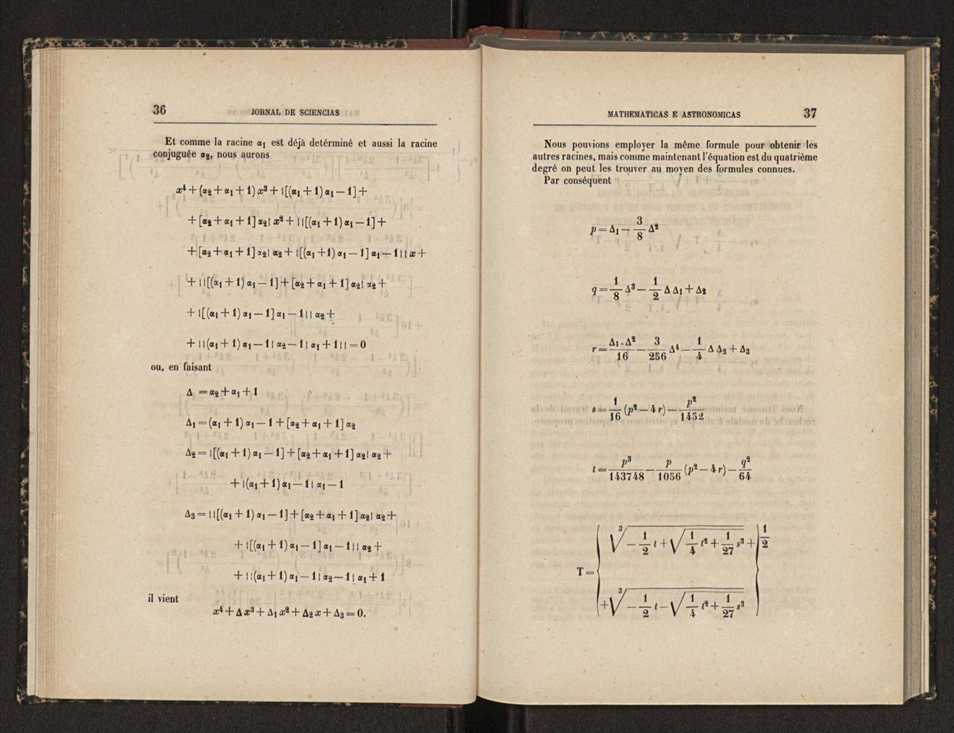 36 JORNAL DE SCIENCIAS
Et comme la racine α₁ est déjà detérminé et aussi la racine
conjuguée α₂, nous aurons
x⁴ + (α₂ + α₁ + 1) x³ + {[(α₁ + 1) α₁ — 1] +
+ [α₂ + α₁ + 1] α₂} x² + {{[(α₁ + 1) α₁ — 1] +
+ [α₂ + α₁ + 1] α₂} α₂ + {[(α₁ + 1) α₁ — 1] α₁ — 1}} x +
+ {{[(α₁ + 1) α₁ — 1] + [α₂ + α₁ + 1] α₂} α₂ +
+ {[(α₁ + 1) α₁ — 1] α₁ — 1}} α₂ +
+ {{(α₁ + 1) α₁ — 1} α₂ — 1} α₁ + 1}} = 0
ou, en faisant
Δ = α₂ + α₁ + 1
Δ₁ = (α₁ + 1) α₁ — 1 + [α₂ + α₁ + 1] α₂
Δ₂ = {[(α₁ + 1) α₁ — 1] + [α₂ + α₁ + 1] α₂} α₂ +
+ {(α₁ + 1) α₁ — 1} α₁ — 1
Δ₃ = {{[(α₁ + 1) α₁ — 1] + [α₂ + α₁ + 1] α₂} α₂ +
+ {[(α₁ + 1) α₁ — 1] α₁ — 1}} α₂ +
+ {{(α₁ + 1) α₁ — 1} α₂ — 1} α₁ + 1
il vient
x⁴ + Δ x³ + Δ₁ x² + Δ₂ x + Δ₃ = 0.
MATHEMATICAS E ASTRONOMICAS 37
Nous pouvions employer la même formule pour obtenir les
autres racines, mais comme maintenant l'équation est du quatrième
degré on peut les trouver au moyen des formules connues.
Par conséquent
p = Δ₁ — 3/8 Δ²
q = 1/8 Δ³ — 1/2 Δ Δ₁ + Δ₂
r = Δ₁·Δ²/16 — 3/256 Δ⁴ — 1/4 Δ Δ₂ + Δ₃
s = 1/16 (p² — 4 r) — p²/1452
t = p³/143748 — p/1056 (p² — 4 r) — q²/64
T = { ∛(— 1/2 t + √(1/4 t² + 1/27 s³)) +
+ ∛(— 1/2 t — √(1/4 t² + 1/27 s³)) } 1/2